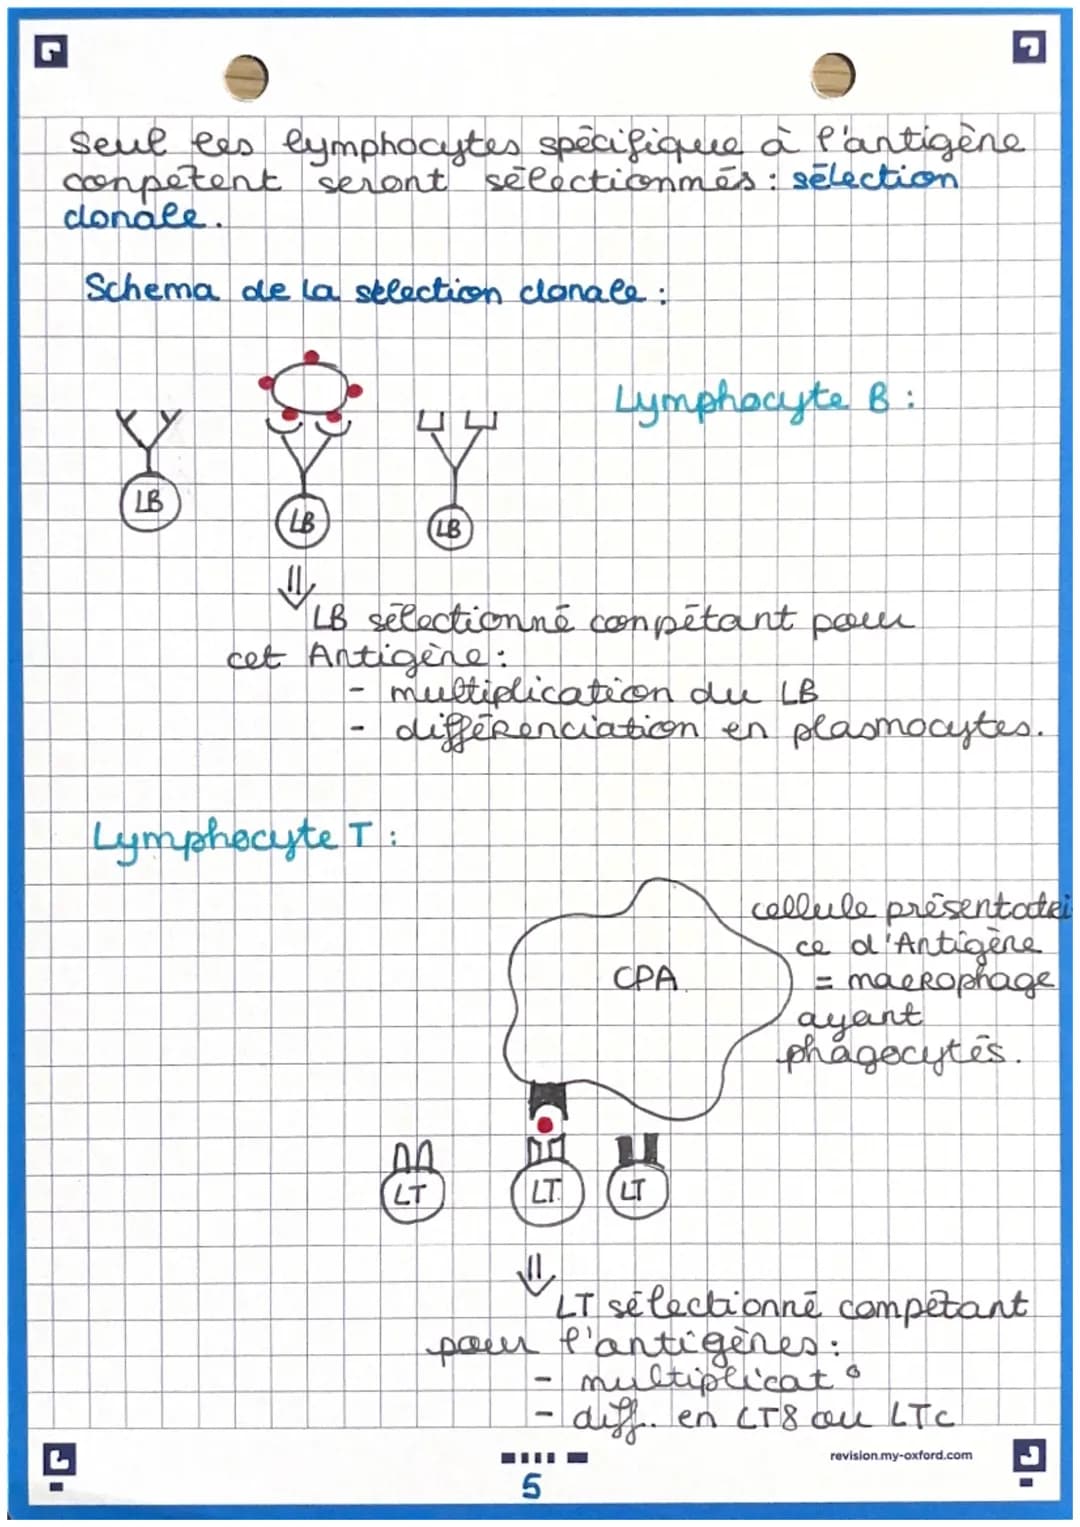 Seul les lymphocytes spécifique à l'antigène
conpétent seront sélectionnnés : sélection
clonale.
Schema de la sélection clonale :
Lymphocyte B :
LB
LB
LB
LB sélectionné conpétant pour
cet Antigène :
- multiplication du LB
- différenciation en plasmocytes.
Lymphocyte T :
cellule présentatri
ce d'Antigène
= macrophage
ayant
phagocytés.
CPA
LT
LT
LT
LT sélectionné compétant
pour l'antigènes :
- multiplicat°
- diff. en LT8 ou LTc
revision.my-oxford.com
5